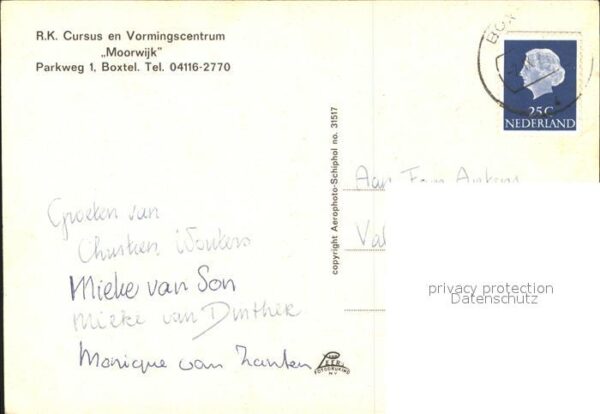 R.K. Cursus en Vormingscentrum
„Moorwijk”
Parkweg 1, Boxtel. Tel. 04116-2770
BOX
25C
NEDERLAND
copyright Aerophoto-Schiphol no. 31517
Aan Fam
Groeten van
Christien Wouters
Mieke van Son
Mieke van Dinther
Monique van Zanten
privacy protection
Datenschutz